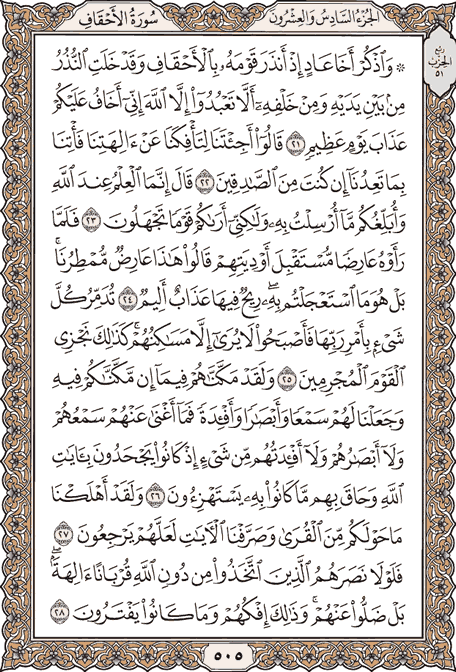 الجزء السادس والعشرون
سورة الأحقاف
ربع
الحزب
٥١
۞ وَاذْكُرْ أَخَا عَادٍ إِذْ أَنذَرَ قَوْمَهُ بِالْأَحْقَافِ وَقَدْ خَلَتِ النُّذُرُ
مِنْ بَيْنِ يَدَيْهِ وَمِنْ خَلْفِهِ أَلَّا تَعْبُدُوا إِلَّا اللَّهَ إِنِّي أَخَافُ عَلَيْكُمْ
عَذَابَ يَوْمٍ عَظِيمٍ ٢١ قَالُوا أَجِئْتَنَا لِتَأْفِكَنَا عَنْ آلِهَتِنَا فَأْتِنَا
بِمَا تَعِدُنَا إِن كُنتَ مِنَ الصَّادِقِينَ ٢٢ قَالَ إِنَّمَا الْعِلْمُ عِندَ اللَّهِ
وَأُبَلِّغُكُم مَّا أُرْسِلْتُ بِهِ وَلَٰكِنِّي أَرَاكُمْ قَوْمًا تَجْهَلُونَ ٢٣ فَلَمَّا
رَأَوْهُ عَارِضًا مُّسْتَقْبِلَ أَوْدِيَتِهِمْ قَالُوا هَٰذَا عَارِضٌ مُّمْطِرُنَا ۚ
بَلْ هُوَ مَا اسْتَعْجَلْتُم بِهِ ۖ رِيحٌ فِيهَا عَذَابٌ أَلِيمٌ ٢٤ تُدَمِّرُ كُلَّ
شَيْءٍ بِأَمْرِ رَبِّهَا فَأَصْبَحُوا لَا يُرَىٰ إِلَّا مَسَاكِنُهُمْ ۚ كَذَٰلِكَ نَجْزِي
الْقَوْمَ الْمُجْرِمِينَ ٢٥ وَلَقَدْ مَكَّنَّاهُمْ فِيمَا إِن مَّكَّنَّاكُمْ فِيهِ
وَجَعَلْنَا لَهُمْ سَمْعًا وَأَبْصَارًا وَأَفْئِدَةً فَمَا أَغْنَىٰ عَنْهُمْ سَمْعُهُمْ
وَلَا أَبْصَارُهُمْ وَلَا أَفْئِدَتُهُم مِّن شَيْءٍ إِذْ كَانُوا يَجْحَدُونَ بِآيَاتِ
اللَّهِ وَحَاقَ بِهِم مَّا كَانُوا بِهِ يَسْتَهْزِئُونَ ٢٦ وَلَقَدْ أَهْلَكْنَا
مَا حَوْلَكُم مِّنَ الْقُرَىٰ وَصَرَّفْنَا الْآيَاتِ لَعَلَّهُمْ يَرْجِعُونَ ٢٧
فَلَوْلَا نَصَرَهُمُ الَّذِينَ اتَّخَذُوا مِن دُونِ اللَّهِ قُرْبَانًا آلِهَةً ۖ
بَلْ ضَلُّوا عَنْهُمْ ۚ وَذَٰلِكَ إِفْكُهُمْ وَمَا كَانُوا يَفْتَرُونَ ٢٨
٥٠٥